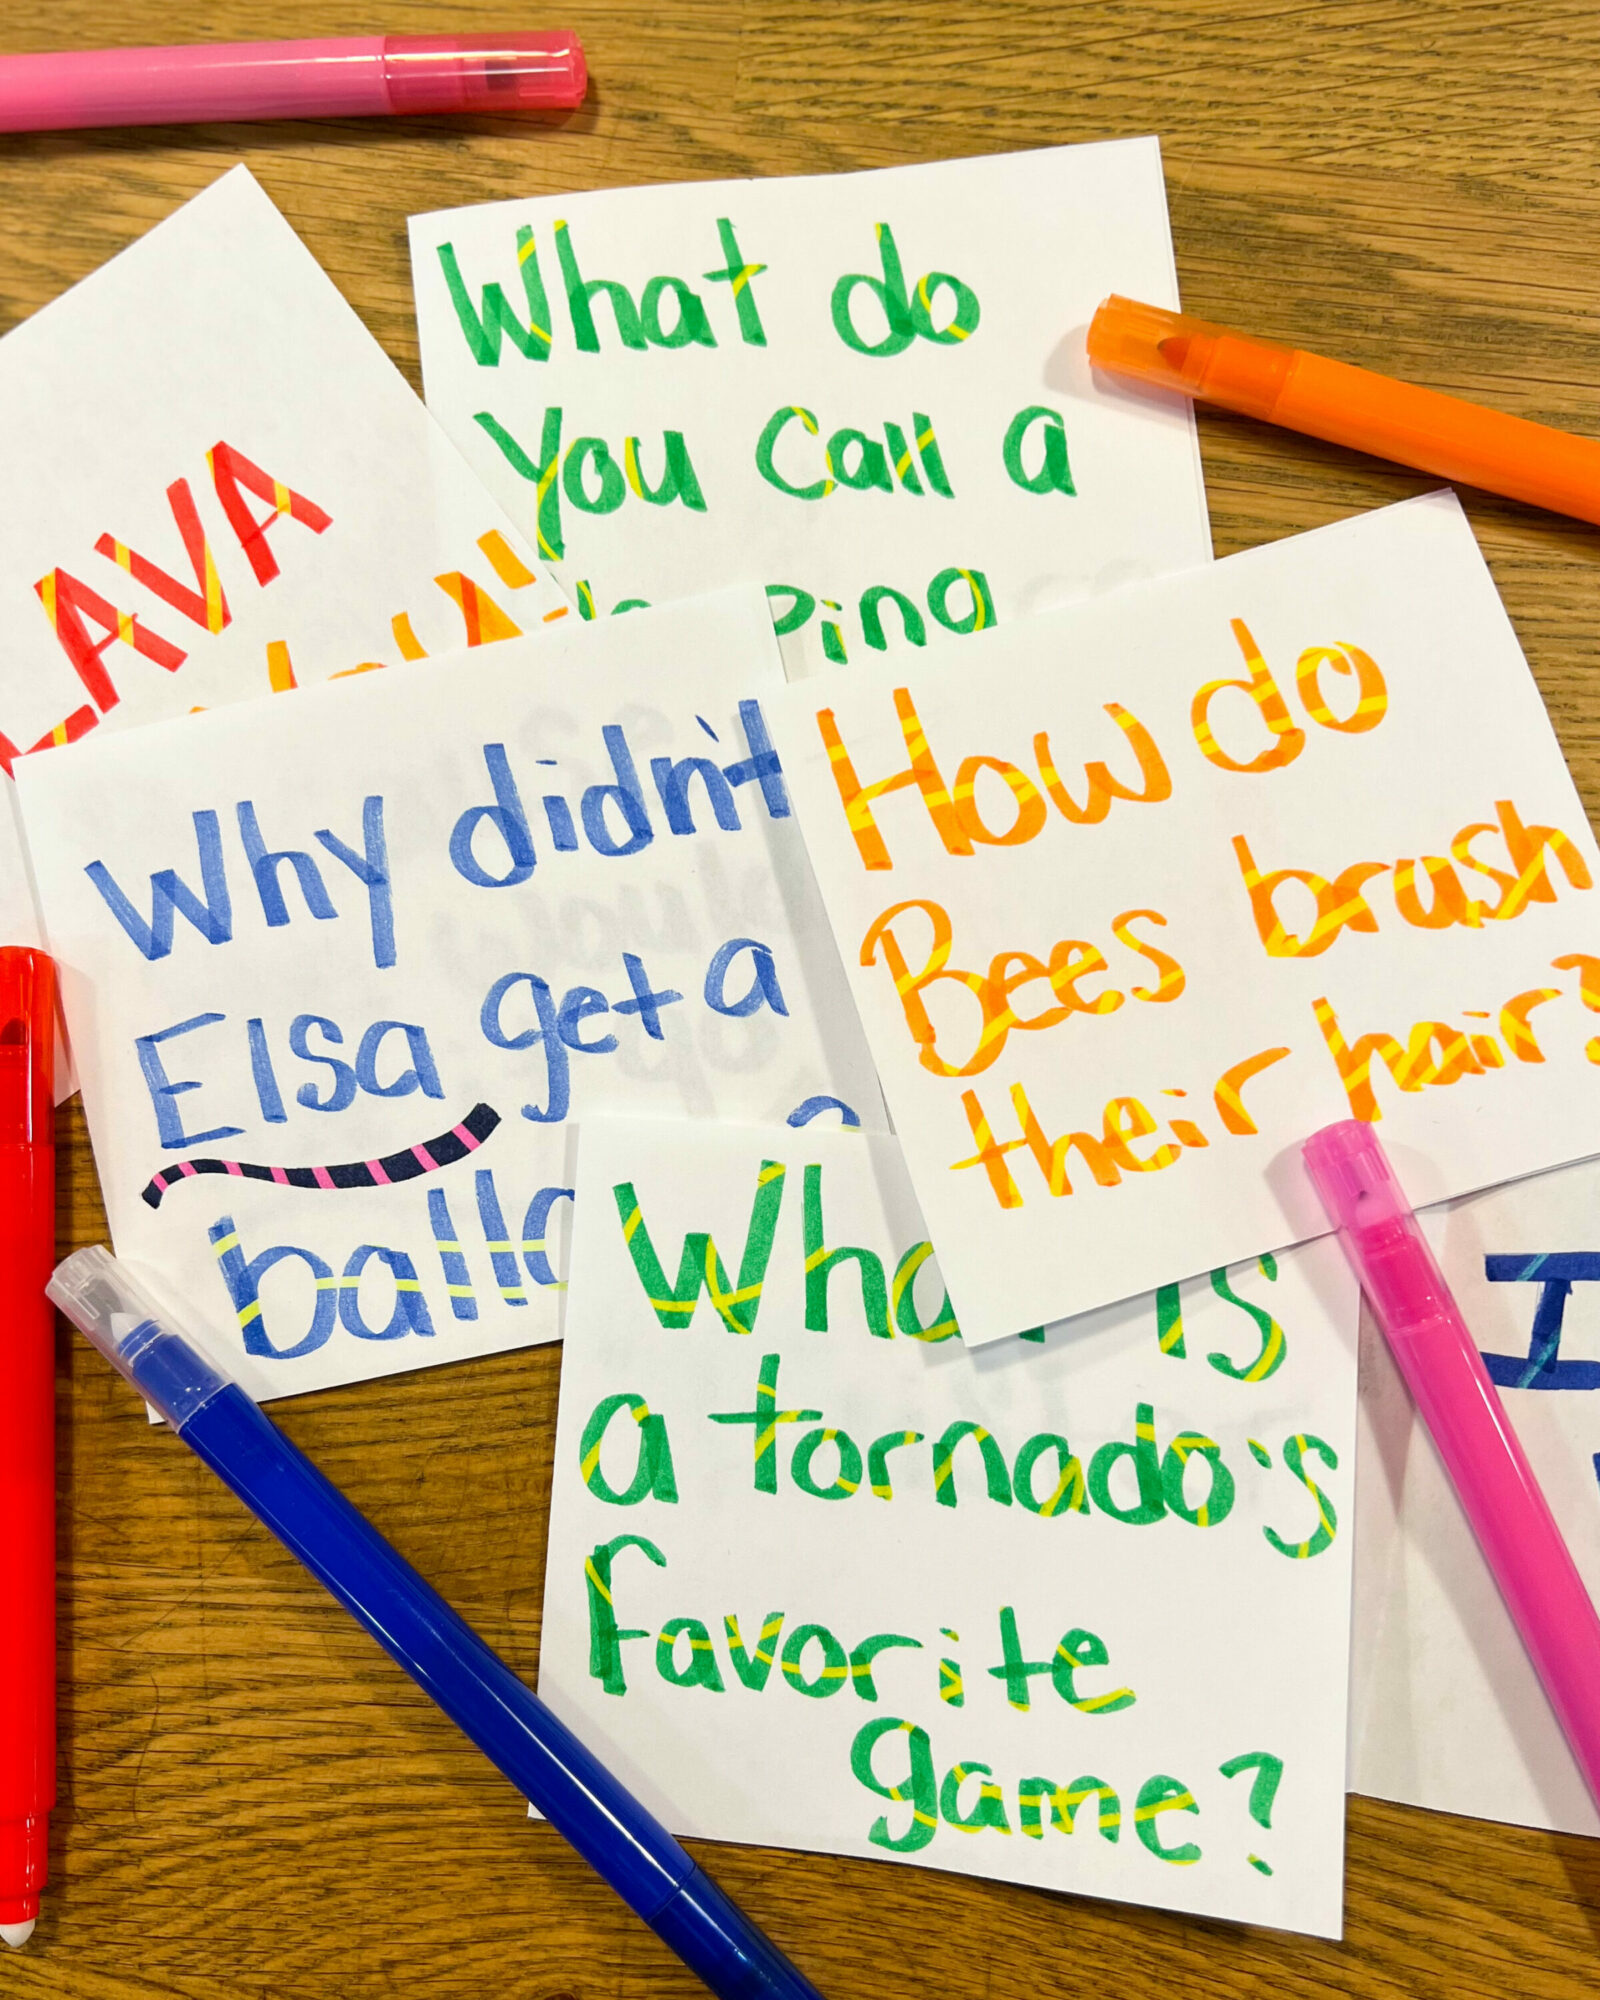 What do
You Call a
LAVA
Why didn't
Elsa get a
How do
Bees brush
their hair?
What is
a tornado's
favorite
game?
I